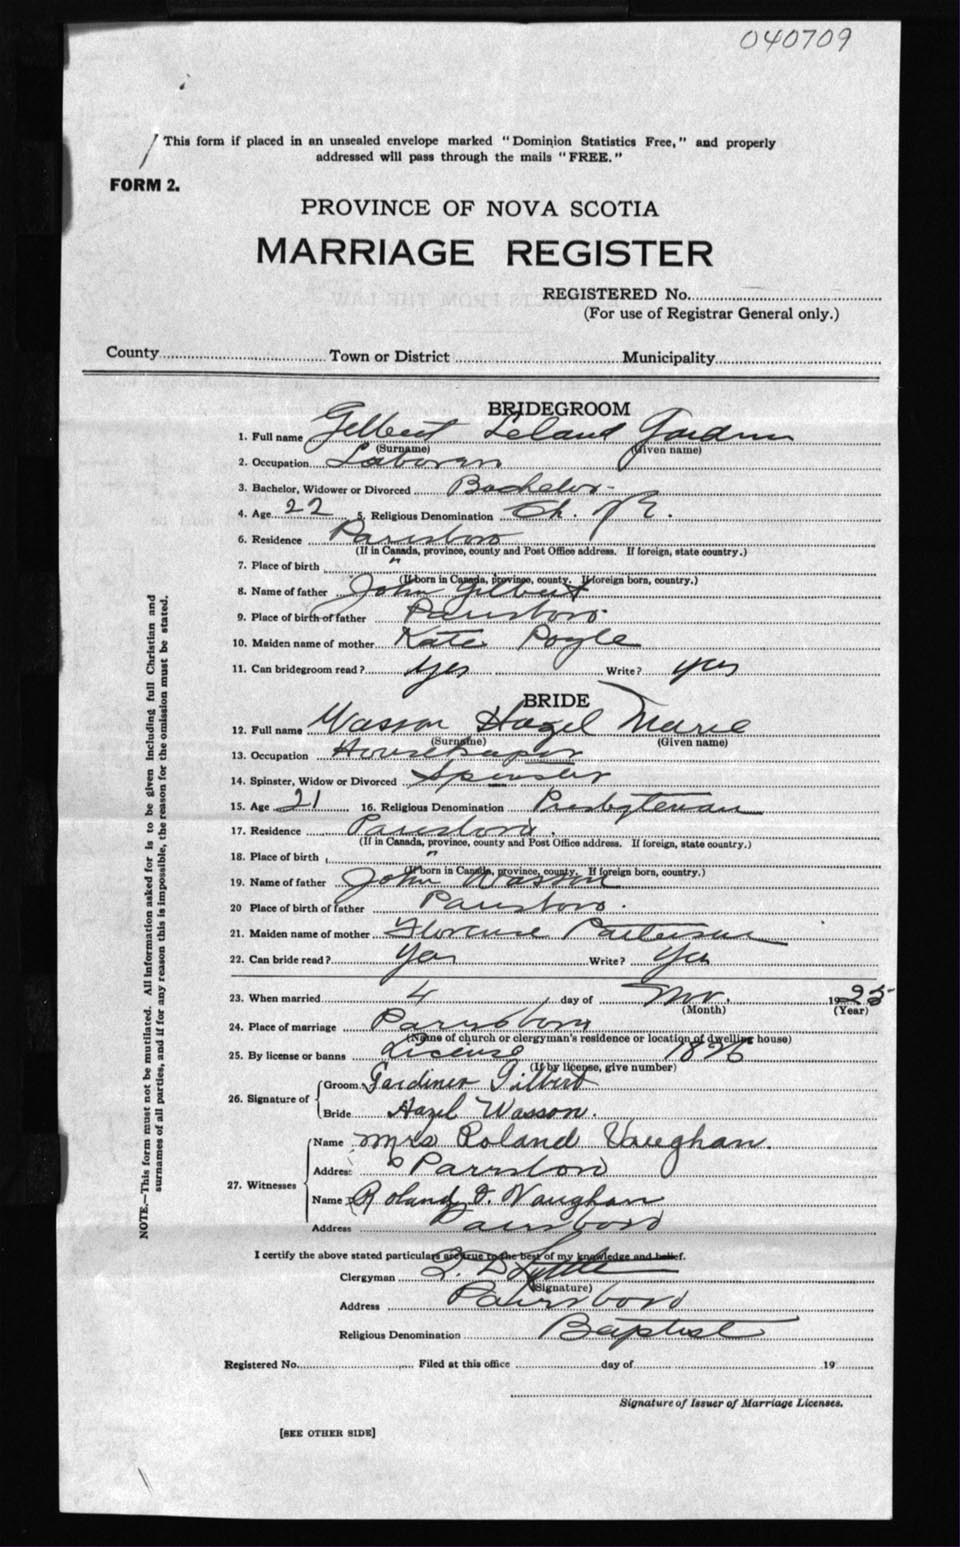 040709
This form if placed in an unsealed envelope marked "Dominion Statistics Free," and properly
addressed will pass through the mails "FREE."
FORM 2.
PROVINCE OF NOVA SCOTIA
MARRIAGE REGISTER
REGISTERED No.
(For use of Registrar General only.)
County Town or District Municipality
BRIDEGROOM
1. Full name Gilbert Leland Gardner
(Surname) (Given name)
2. Occupation
3. Bachelor, Widower or Divorced Bachelor
4. Age 22 5. Religious Denomination Ch. of E.
6. Residence Parrsboro
(If in Canada, province, county and Post Office address. If foreign, state country.)
7. Place of birth "
(If born in Canada, province, county. If foreign born, country.)
8. Name of father John Gilbert
9. Place of birth of father Parrsboro
10. Maiden name of mother Kate
11. Can bridegroom read? yes Write? yes
BRIDE
12. Full name Wasson Hazel Marie
(Surname) (Given name)
13. Occupation Housekeeper
14. Spinster, Widow or Divorced Spinster
15. Age 21 16. Religious Denomination Presbyterian
17. Residence Parrsboro.
(If in Canada, province, county and Post Office address. If foreign, state country.)
18. Place of birth "
(If born in Canada, province, county. If foreign born, country.)
19. Name of father John Wasson
20 Place of birth of father Parrsboro.
21. Maiden name of mother Florence Patterson
22. Can bride read? Yes Write? Yes
23. When married 4 day of Nov. 1925
(Month) (Year)
24. Place of marriage Parrsboro
(Name of church or clergyman's residence or location of dwelling house)
25. By license or banns License 1896
(If by license, give number)
26. Signature of Groom Gardiner Gilbert
Bride Hazel Wasson.
27. Witnesses Name Mrs Roland Vaughan.
Address Parrsboro
Name Roland Vaughan
Address Parrsboro
I certify the above stated particulars are true to the best of my knowledge and belief.
Clergyman
(Signature)
Address Parrsboro
Religious Denomination Baptist
Registered No. Filed at this office day of 19
Signature of Issuer of Marriage Licenses.
[SEE OTHER SIDE]
NOTE.—This form must not be mutilated. All information asked for is to be given including full Christian and
surnames of all parties, and if for any reason this is impossible, the reason for the omission must be stated.